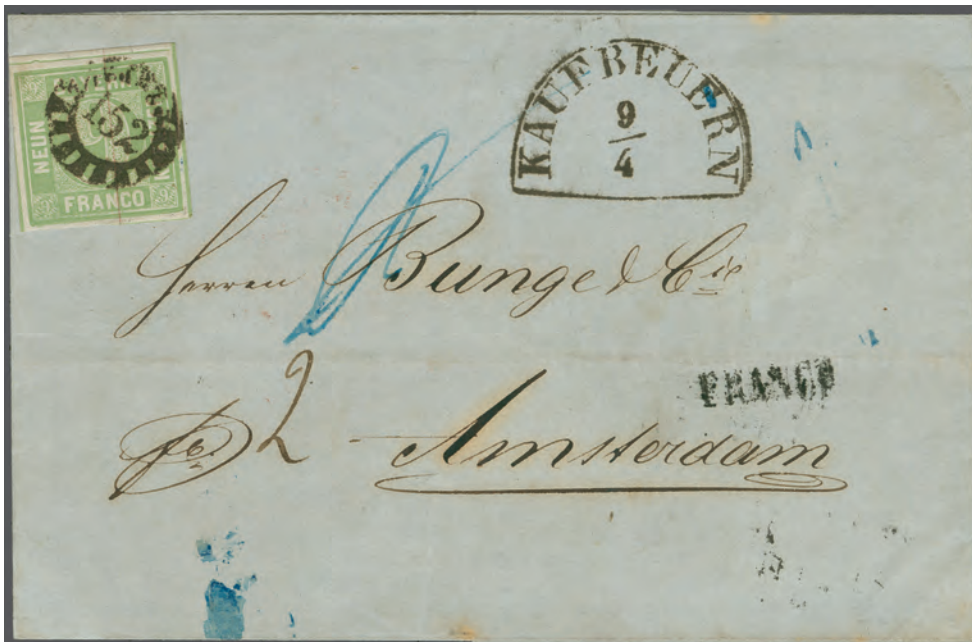 NEUN
152
FRANCO
KAUFBEUERN
9
4
Herren Bunge & Cie
FRANCO
fo. 2 Amsterdam